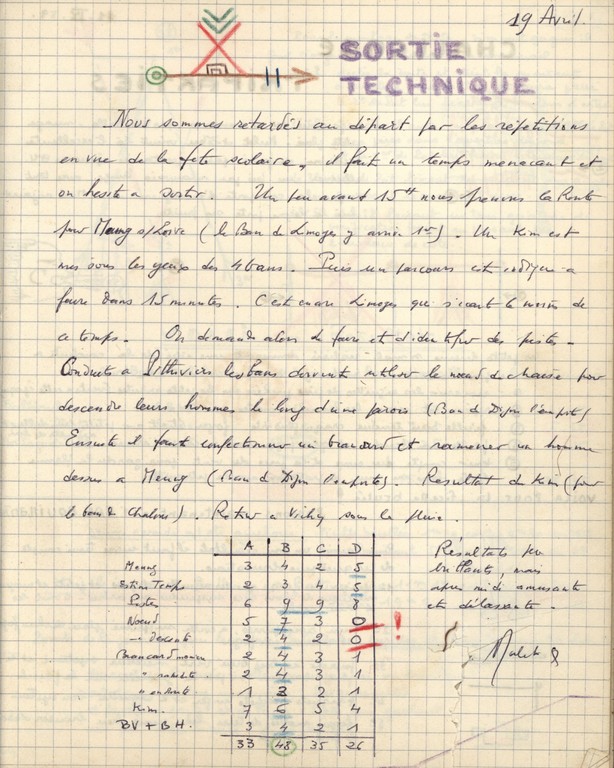 19 Avril.
SORTIE
TECHNIQUE
Nous sommes retardés au départ par les répétitions
en vue de la fete scolaire, il fait un temps menacant et
on hesite a sortir. Un peu avant 15H nous prenons la Route
pour Meung s/Loire (le Ban de Limoges y arrive 1er). Un Kim est
mis sous les yeux des 4 bans. Puis un parcours est indiqué a
faire dans 15 minutes. C'est encore Limoges qui s'écart le moins de
ce temps. On demande alors de faire et d'identifier des pistes.
Conduits a Pithiviers les bans doivent utiliser le noeud de chaise pour
descendre leurs hommes le long d'une parois (Ban de Dijon l'emporte)
Ensuite il faut confectionner un brancard et ramener un homme
dessus a Meung (Ban de Dijon l'emporte). Resultat du Kim (pour
le ban de Chalons). Retour a Vichy sous la pluie.
A B C D
Meung 3 4 2 5
Estim Temps 2 3 4 5
Pistes 6 9 9 8
Noeud 5 7 3 0 !
descente 2 4 2 0
Brancard 2 4 3 1
" 2 4 3 1
" 1 3 2 1
Kim. 7 6 5 4
BV + BH. 3 4 2 1
33 48 35 26
Résultats peu
brillants, mais
après midi amusante
et délassante.